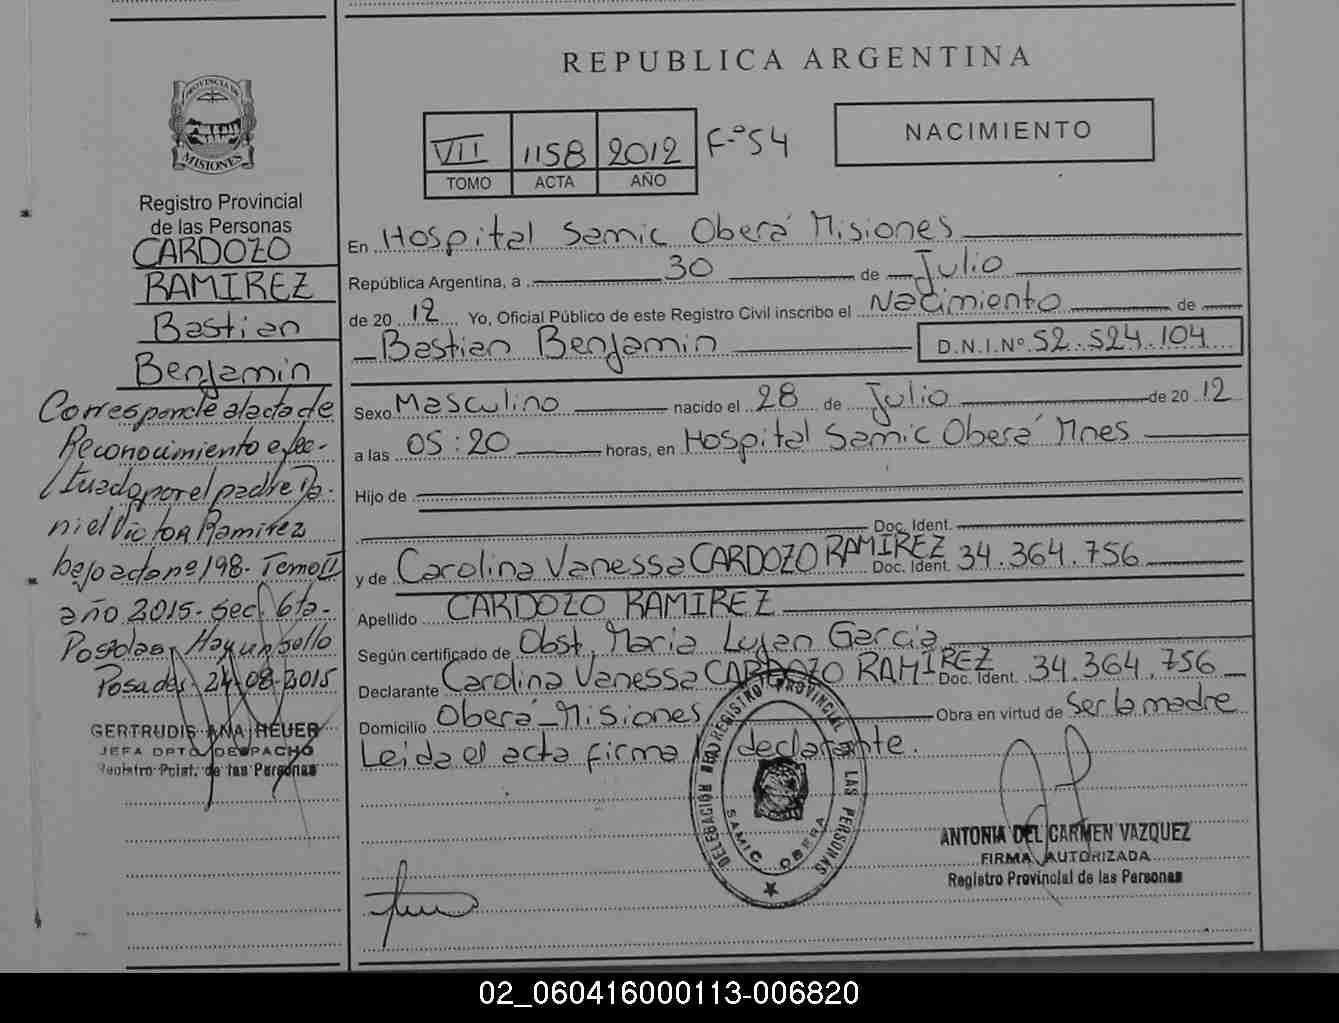 REPUBLICA ARGENTINA
PROVINCIA DE
MISIONES
VII 1158 2012 F-º54
TOMO ACTA AÑO
NACIMIENTO
Registro Provincial
de las Personas
CARDOZO
RAMIREZ
Bastian
Benjamin
Corresponde al acta de
Reconocimiento efec-
tuado por el padre Da-
niel Victor Ramirez
bajo acta nº 198- Tomo II
año 2015- Sec. 6ta-
Posadas, Hay un sello
Posadas, 24-08-2015
GERTRUDIS ANA HEUER
JEFA DPTO DESPACHO
Registro Pcial. de las Personas
En Hospital Samic Oberá Misiones
República Argentina, a 30 de Julio
de 2012 Yo, Oficial Público de este Registro Civil inscribo el Nacimiento de
Bastian Benjamin D.N.I.Nº 52.524.104
Sexo Masculino nacido el 28 de Julio de 2012
a las 05:20 horas, en Hospital Samic Oberá Mnes
Hijo de
Doc. Ident.
y de Carolina Vanessa CARDOZO RAMIREZ Doc. Ident. 34.364.756
Apellido CARDOZO RAMIREZ
Según certificado de Obst. Maria Lujan Garcia
Declarante Carolina Vanessa CARDOZO RAMIREZ Doc. Ident. 34.364.756
Domicilio Oberá-Misiones Obra en virtud de Ser la madre
Leida el acta firma la declarante.
DELEGACIÓN DEL REGISTRO PROVINCIAL
LAS PERSONAS
SAMIC OBERA
ANTONIA DEL CARMEN VAZQUEZ
FIRMA AUTORIZADA
Registro Provincial de las Personas
02_060416000113-006820